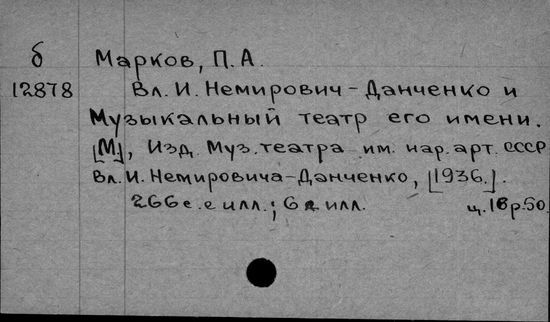 б Марков, П.А.
12878 Вл. И. Немирович-Данченко и
Музыкальный театр его имени.
[М], Изд. Муз. театра им. нар. арт. СССР
Вл. И. Немировича-Данченко, [1936.].
266 с. с илл.; 6 илл. ц. 18 р. 50